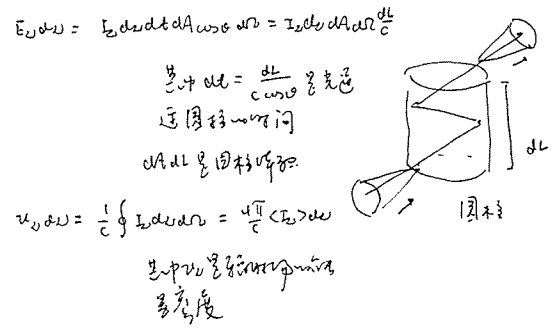 E_ν dν = I_ν dν dt dA cosθ dΩ = I_ν dν dA dΩ dL/c
其中 dt = dL/(c cosθ) 是光通
过圆柱的时间
dA dL 是圆柱体积
u_ν dν = 1/c ∮ I_ν dν dΩ = 4π/c <I_ν> dν
其中 u_ν 是
密度
dL
圆柱